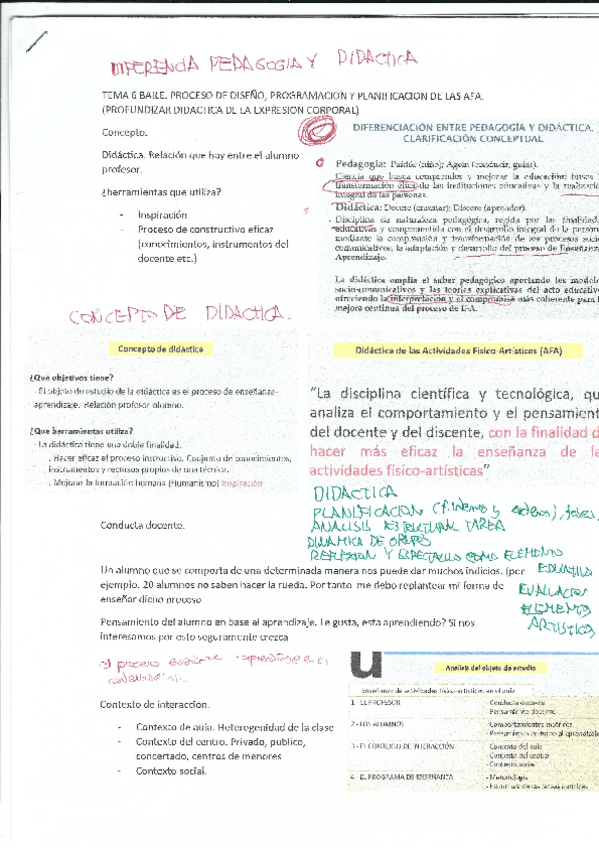 DIFERENCIA PEDAGOGIA Y DIDACTICA
TEMA 6 BAILE. PROCESO DE DISEÑO, PROGRAMACION Y PLANIFICACION DE LAS AFA.
(PROFUNDIZAR DIDACTICA DE LA EXPRESION CORPORAL)
Concepto.
Didáctica. Relación que hay entre el alumno
profesor.
¿herramientas que utiliza?
- Inspiración
- Proceso de constructivo eficaz
(conocimientos, instrumentos del
docente etc.)
DIFERENCIACIÓN ENTRE PEDAGOGÍA Y DIDÁCTICA.
CLARIFICACIÓN CONCEPTUAL
Pedagogía: Paidós (niño); Agein (conducir, guiar).
Ciencia que busca comprender y mejorar la educación; busca
transformación ética de las instituciones educativas y la
integral de las personas.
Didáctica: Docere (enseñar); Discere (aprender).
Disciplina de naturaleza pedagógica, regida por las
educativas y comprometida con el desarrollo integral de la
mediante la comprensión y transformación de los procesos
comunicativos, la adaptación y desarrollo del proceso de
Aprendizaje.
La didáctica amplía el saber pedagógico aportando los
socio-comunicativos y las teorías explicativas del acto
ofreciendo la interpretación y el compromiso más coherente para
mejora continua del proceso de E-A.
CONCEPTO DE DIDACTICA.
Concepto de didáctica
¿Qué objetivos tiene?
- El objeto de estudio de la didáctica es el proceso de enseñanza-
aprendizaje. Relación profesor alumno.
¿Qué herramientas utiliza?
- La didáctica tiene una doble finalidad.
. Hacer eficaz el proceso instructivo. Conjunto de conocimientos,
instrumentos y recursos propios de una técnica.
. Mejorar la formación humana (Humanismo) Inspiración
Didáctica de las Actividades Físico-Artísticas (AFA)
“La disciplina científica y tecnológica,
analiza el comportamiento y el
del docente y del discente, con la finalidad
hacer más eficaz la enseñanza de
actividades físico-artísticas”
DIDACTICA
PLANIFICACION
ANALISIS ESTRUCTURAL TAREA
DINAMICA DE GRUPOS
REFLEXION Y ESPECTACULO COMO ELEMENTO
EVALUACION
ELEMENTO
ARTISTICO
Conducta docente.
Un alumno que se comporta de una determinada manera nos puede dar muchos indicios. (por
ejemplo. 20 alumnos no saben hacer la rueda. Por tanto me debo replantear mi forma de
enseñar dicho proceso
Pensamiento del alumno en base al aprendizaje. Le gusta, esta aprendiendo? Si nos
interesamos por esto seguramente crezca
el proceso enseñanza - aprendizaje
Contexto de interacción.
- Contexto de aula. Heterogenidad de la clase
- Contexto del centro. Privado, publico,
concertado, centros de menores
- Contexto social.
u
Análisis del objeto de estudio
Enseñanza de actividades físico-artísticas en el aula
1 - EL PROFESOR
- Conducta docente
- Pensamiento docente
2 - LOS ALUMNOS
- Comportamientos motrices
- Pensamiento en torno al
3 - EL CONTEXTO DE INTERACCIÓN
- Contexto del aula
- Contexto del centro
- Contexto social
4 - EL PROGRAMA DE ENSEÑANZA
- Metodología